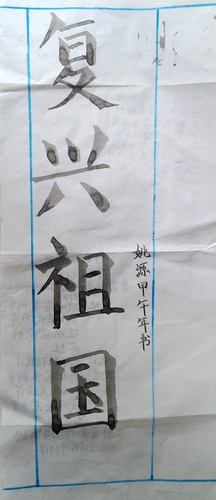 复兴祖国
姚源甲午年书